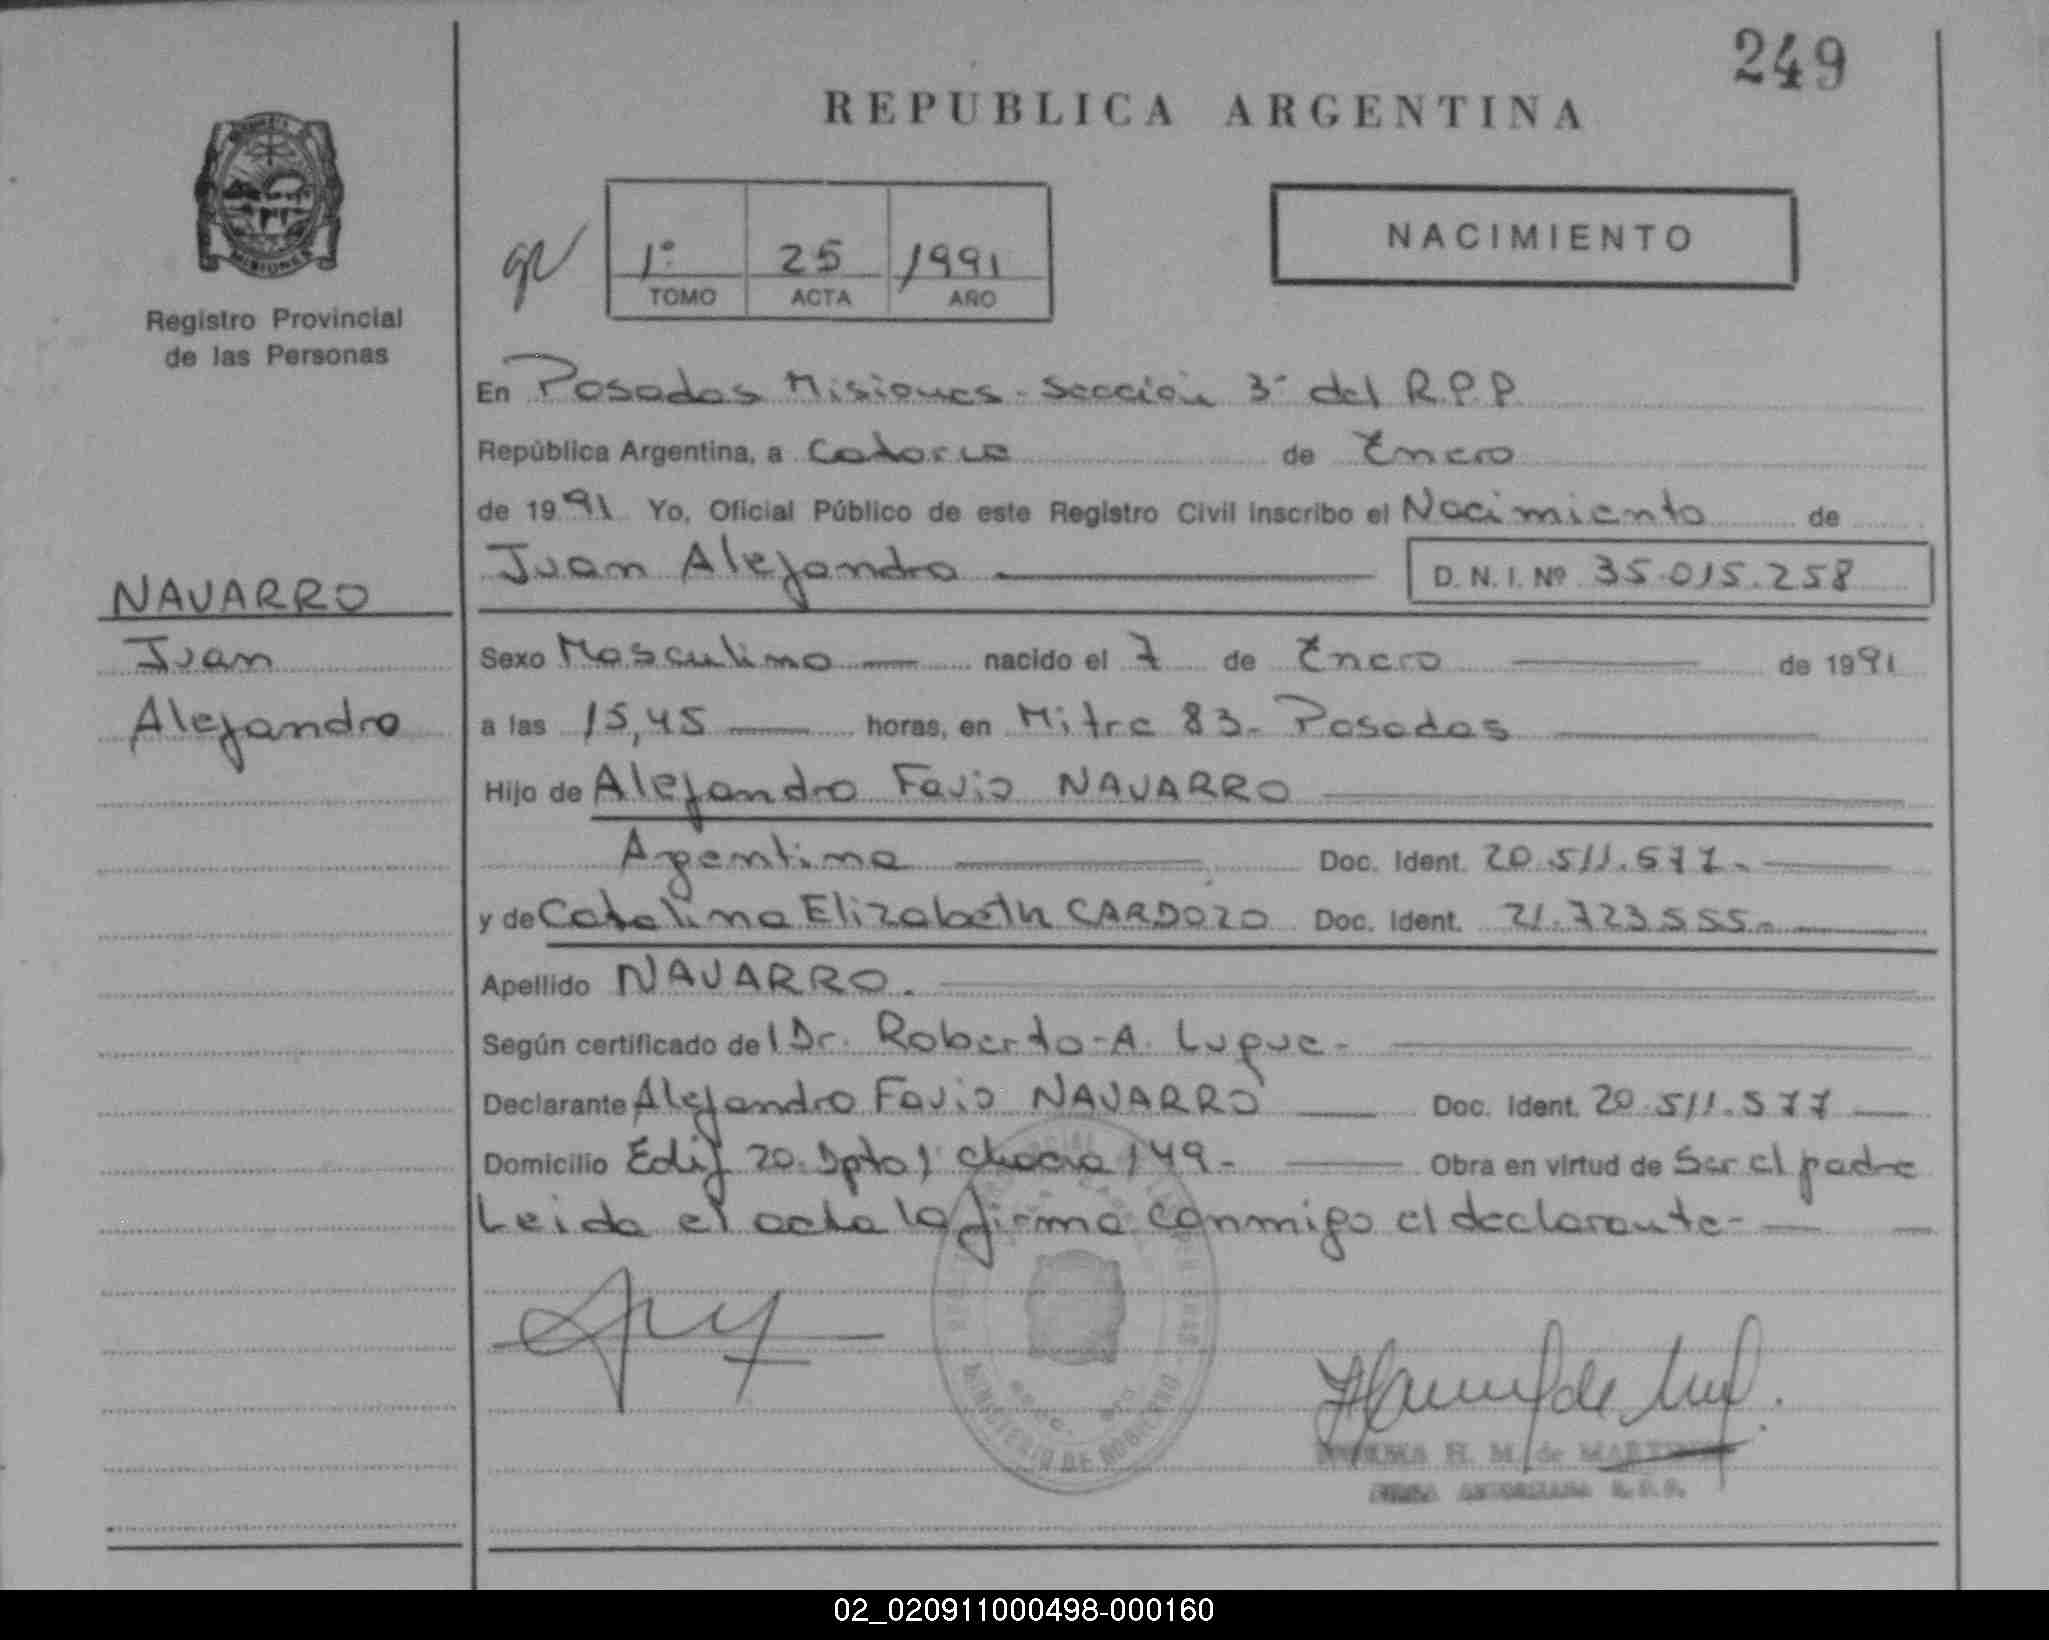 249
REPUBLICA ARGENTINA
MISIONES
Registro Provincial
de las Personas
1º 25 1991
TOMO ACTA AÑO
NACIMIENTO
En Posadas Misiones - Sección 3ª del R.P.P.
República Argentina, a Catorce de Enero
de 1991 Yo, Oficial Público de este Registro Civil inscribo el Nacimiento de
Juan Alejandro D.N.I. Nº 35.015.258
NAVARRO
Juan
Alejandro
Sexo Masculino nacido el 7 de Enero de 1991
a las 15,45 horas, en Mitre 83 - Posadas
Hijo de Alejandro Favio NAVARRO
Argentina Doc. Ident. 20.511.577.-
y de Catalina Elizabeth CARDOZO Doc. Ident. 21.723.555.-
Apellido NAVARRO.
Según certificado del Dr. Roberto A. Luque -
Declarante Alejandro Favio NAVARRO Doc. Ident. 20.511.577
Domicilio Edif 20 Dpto 1 chacra 149.- Obra en virtud de Ser el padre
Leida el acta la firma conmigo el declarante -
MINISTERIO DE GOBIERNO
NORMA H. M. de MARTINEZ
FIRMA AUTORIZADA R.P.P.
02_020911000498-000160